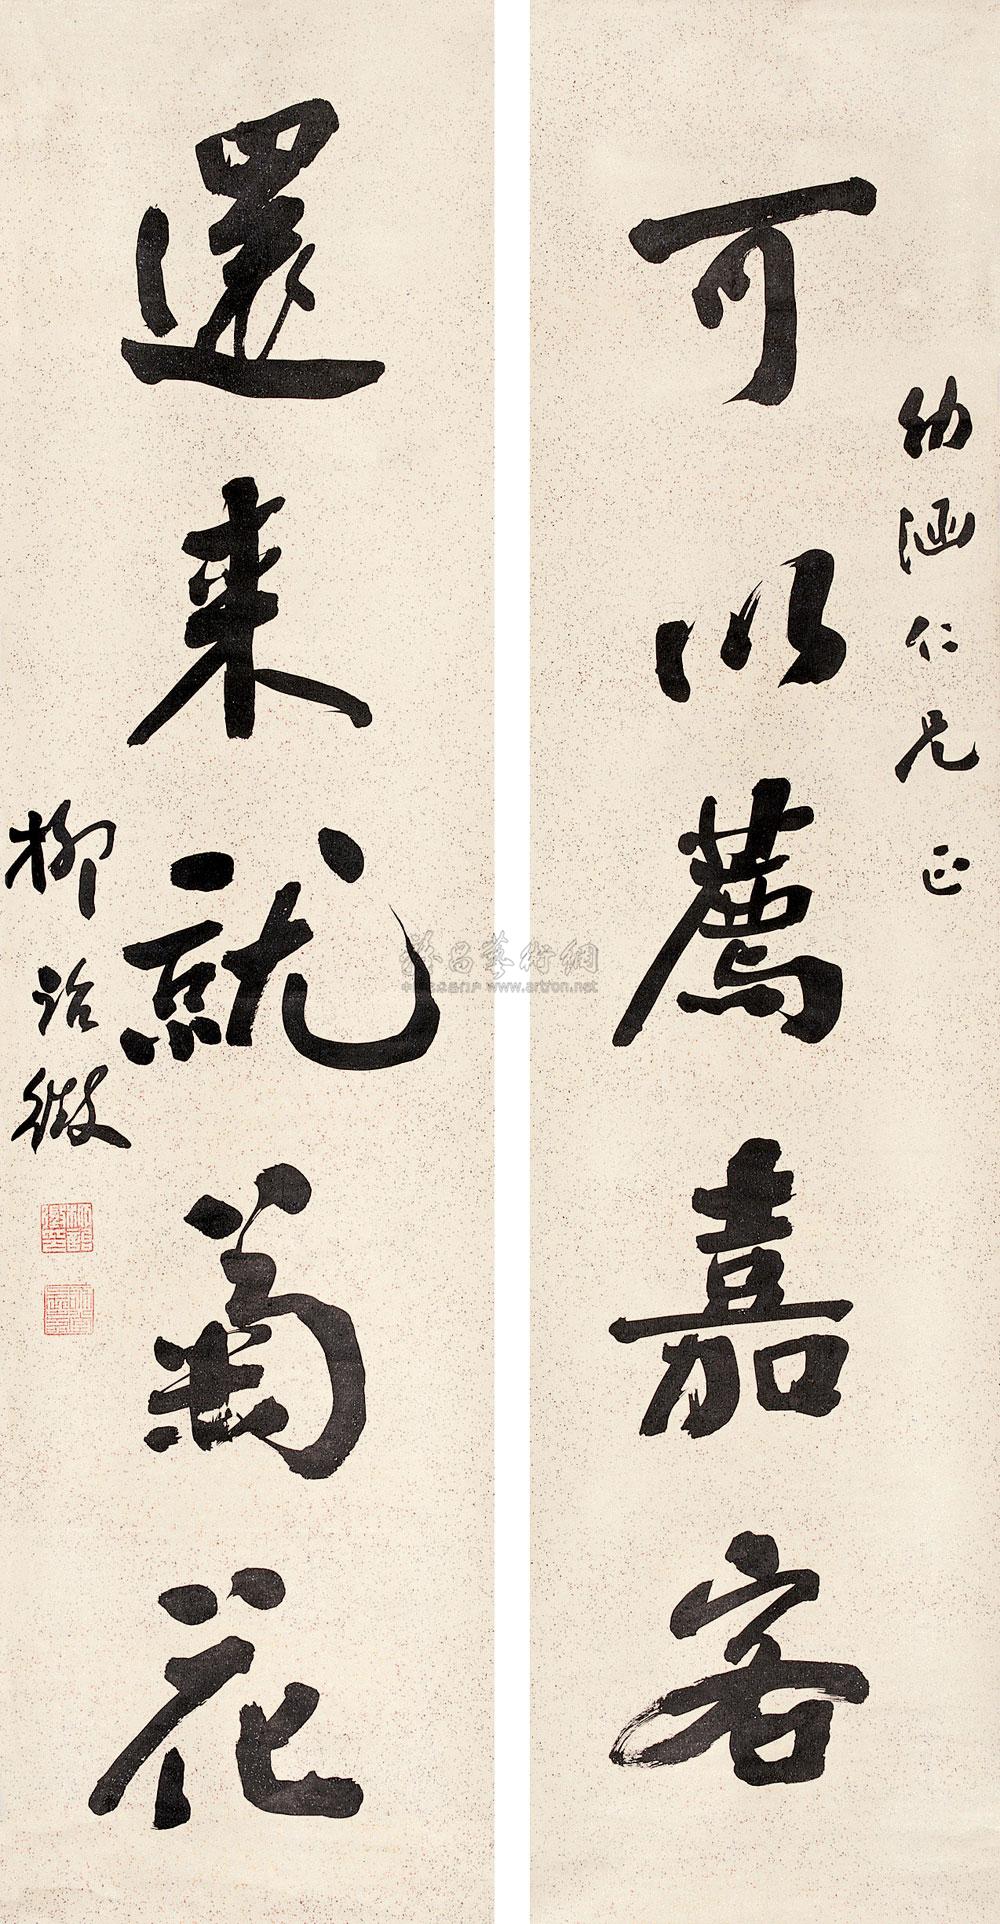 幼涵仁兄 正
可以薦嘉客
還来就菊花
柳詒徵
www.artron.net